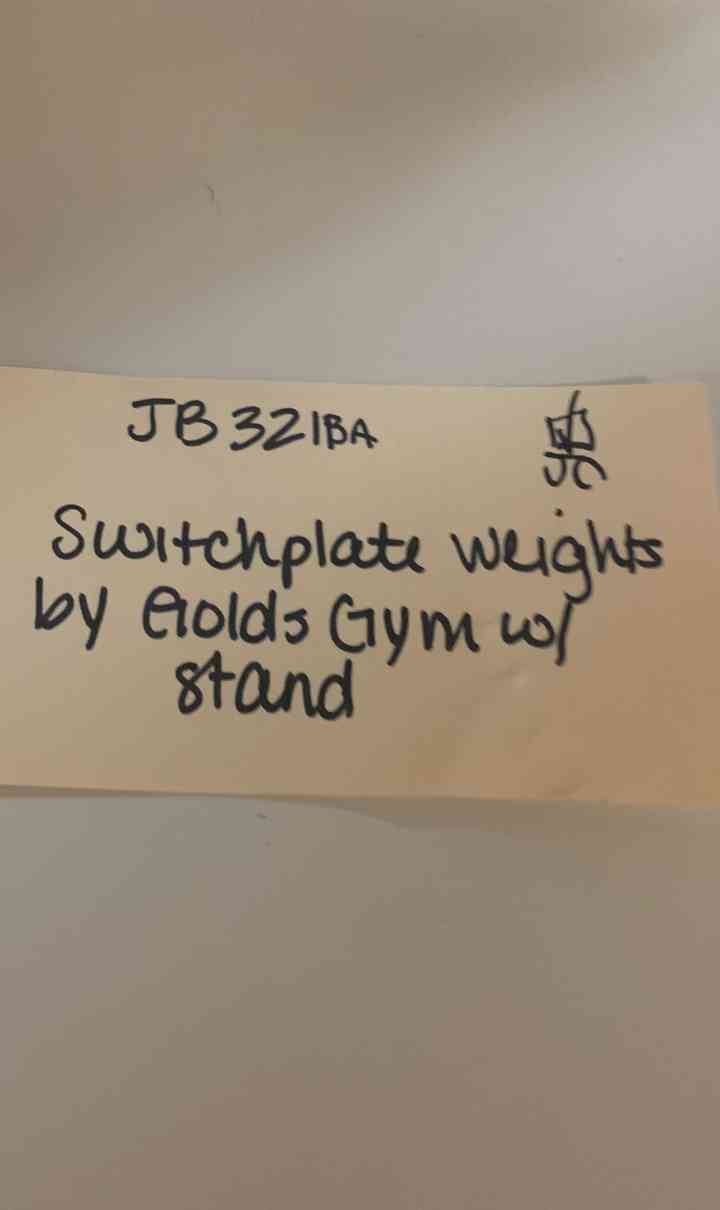 JB321BA
JC
Switchplate weights
by Golds Gym w/
stand